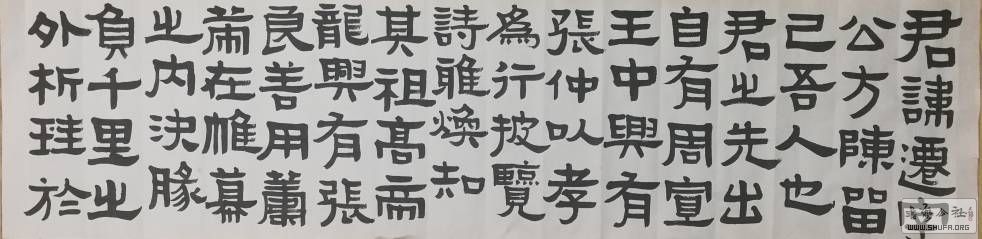 君諱遷字
公方陳留
己吾人也
君之先出
自有周宣
王中興有
張仲以孝
為行披覽
詩雅煥知
其祖高帝
龍興有張
良善用籌
策在帷幕
之内決勝
負千里之
外析珪於
公社
WWW.SHUFR.COM